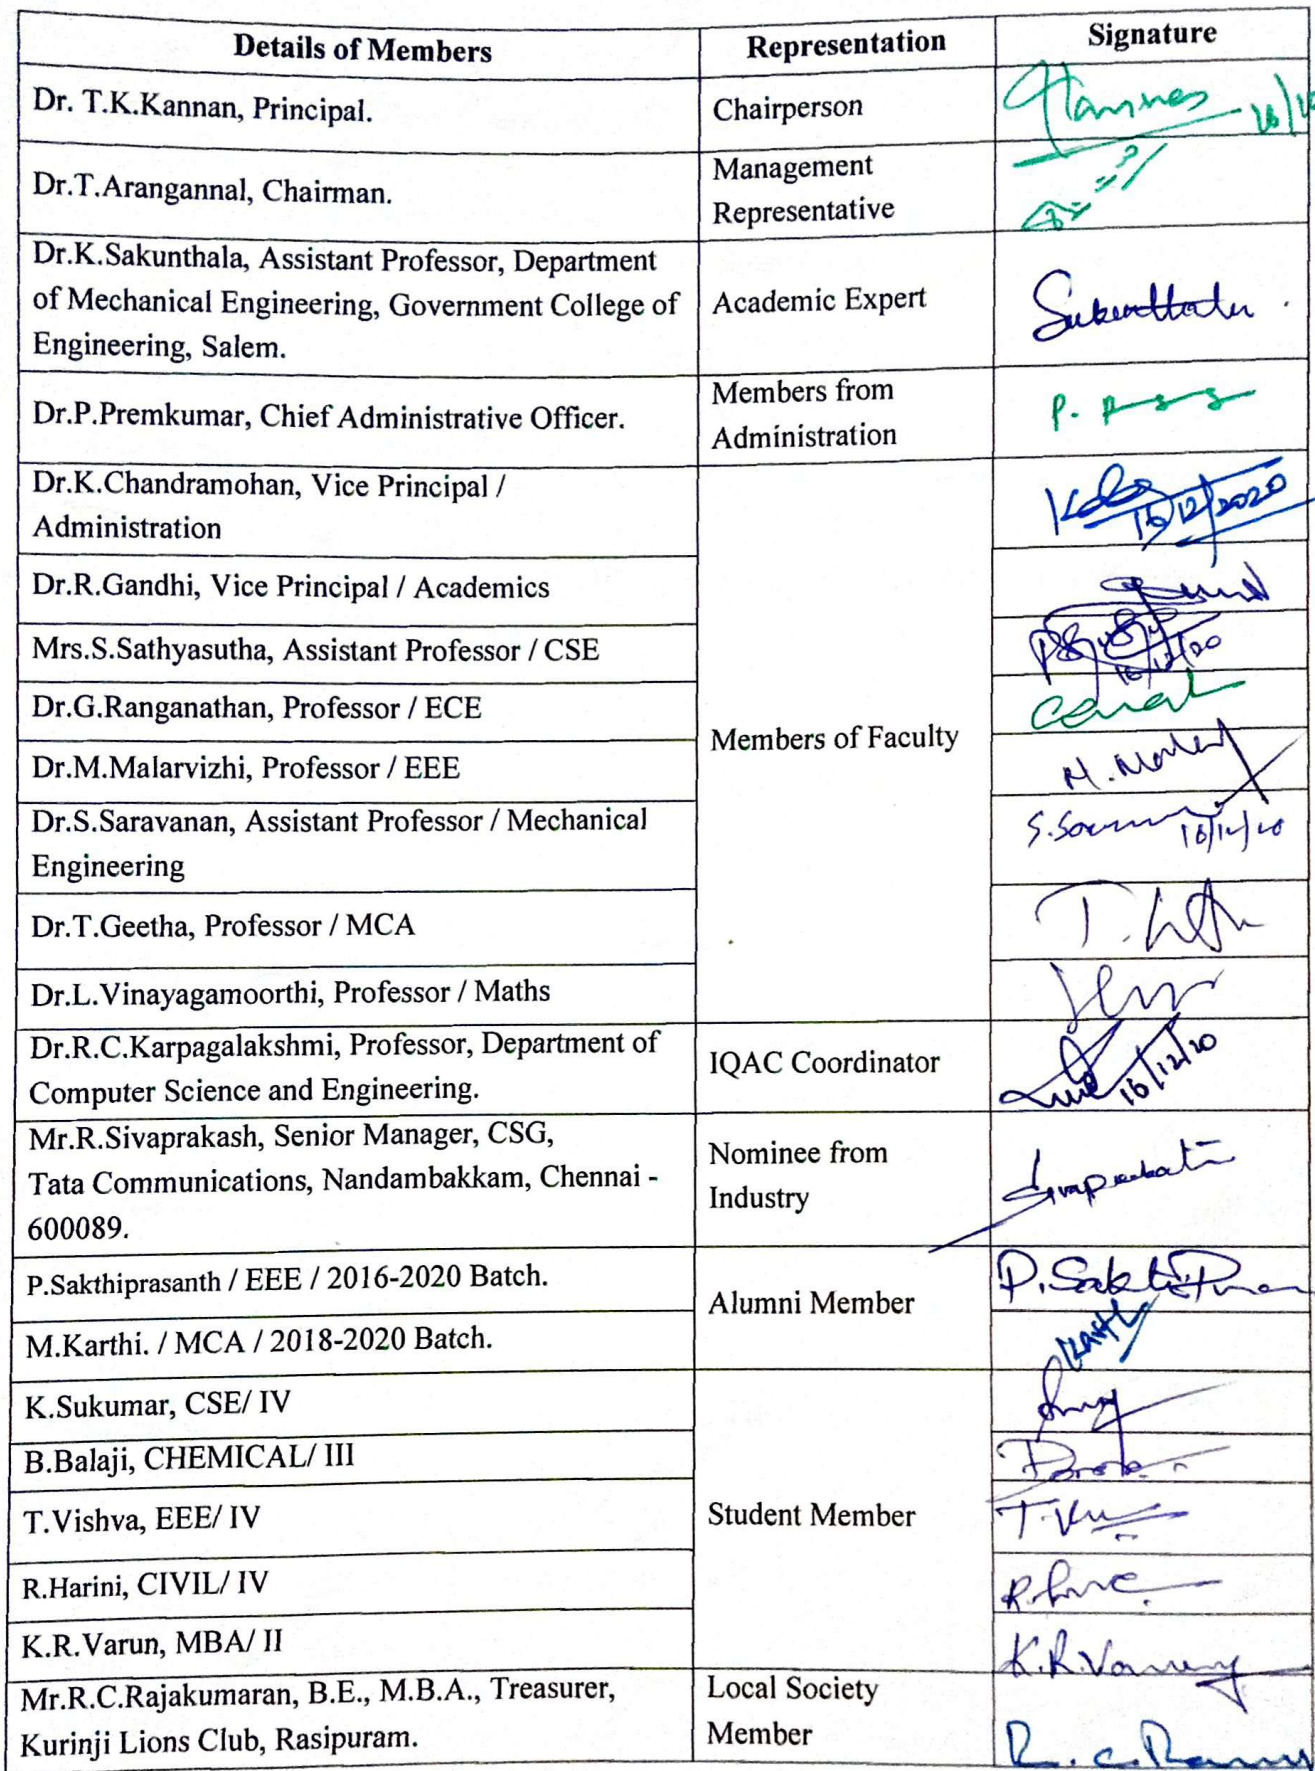 Details of Members Representation Signature
Dr. T.K.Kannan, Principal. Chairperson
Dr.T.Arangannal, Chairman. Management
Representative
Dr.K.Sakunthala, Assistant Professor, Department
of Mechanical Engineering, Government College of
Engineering, Salem.
Academic Expert
Dr.P.Premkumar, Chief Administrative Officer. Members from
Administration
P.
Dr.K.Chandramohan, Vice Principal /
Administration
16/12/2020
Dr.R.Gandhi, Vice Principal / Academics
Mrs.S.Sathyasutha, Assistant Professor / CSE
16/12/20
Dr.G.Ranganathan, Professor / ECE
Members of Faculty
Dr.M.Malarvizhi, Professor / EEE
M.
Dr.S.Saravanan, Assistant Professor / Mechanical
Engineering
S. 16/12/20
Dr.T.Geetha, Professor / MCA
T.
Dr.L.Vinayagamoorthi, Professor / Maths
Dr.R.C.Karpagalakshmi, Professor, Department of
Computer Science and Engineering.
IQAC Coordinator
16/12/20
Mr.R.Sivaprakash, Senior Manager, CSG,
Tata Communications, Nandambakkam, Chennai -
600089.
Nominee from
Industry
P.Sakthiprasanth / EEE / 2016-2020 Batch.
Alumni Member
M.Karthi. / MCA / 2018-2020 Batch.
K.Sukumar, CSE/ IV
B.Balaji, CHEMICAL/ III
T.Vishva, EEE/ IV
Student Member
R.Harini, CIVIL/ IV
K.R.Varun, MBA/ II
K.R.
Mr.R.C.Rajakumaran, B.E., M.B.A., Treasurer,
Kurinji Lions Club, Rasipuram.
Local Society
Member